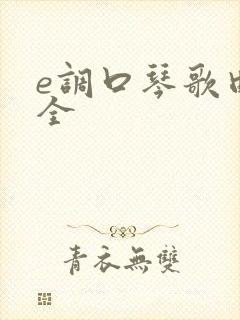 e調口琴歌曲
全
青衣無雙